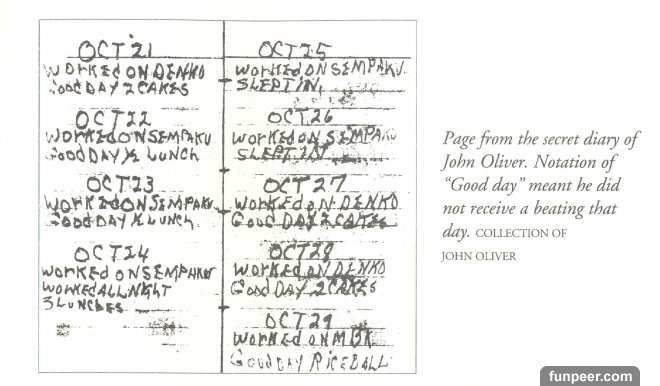 OCT 21
WORKED ON DENKO
GOOD DAY 2 CAKES
OCT 22
WORKED ON SEMPAKU
GOOD DAY ½ LUNCH
OCT 23
WORKED ON SEMPAKU
GOOD DAY ½ LUNCH
OCT 24
WORKED ON SEMPAKU
WORKED ALL NIGHT
3 LUNCHES
OCT 25
WORKED ON SEMPAKU
SLEPT IN
OCT 26
WORKED ON SEMPAKU
SLEPT IN
OCT 27
WORKED ON DENKO
GOOD DAY 2 CAKES
OCT 28
WORKED ON DENKO
GOOD DAY 2 CAKES
OCT 29
WORKED ON
GOOD DAY RICE BALL
Page from the secret diary of
John Oliver. Notation of
“Good day” meant he did
not receive a beating that
day. COLLECTION OF
JOHN OLIVER
funpeer.com